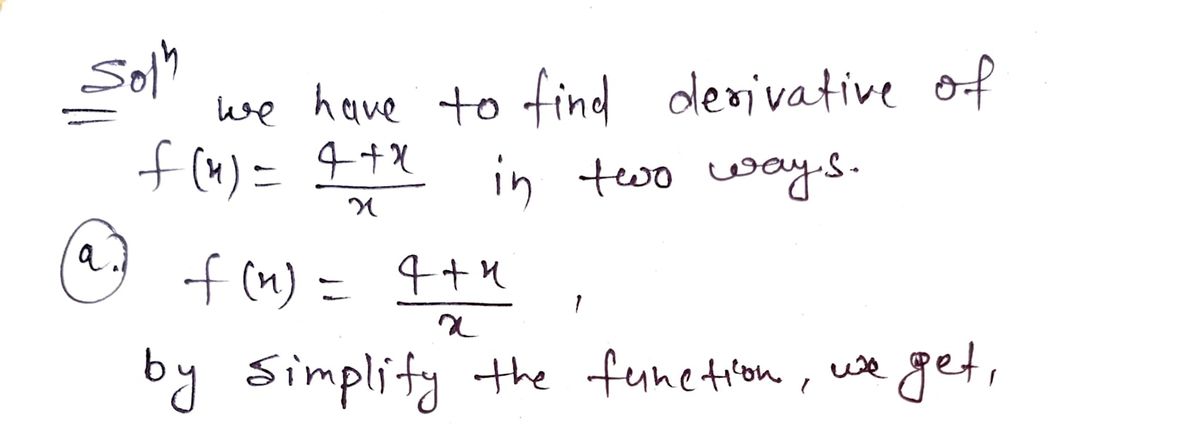 Solⁿ we have to find derivative of
f(x) = 4+x/x in two ways.
a.) f(x) = 4+x/x ,
by simplify the function, we get,